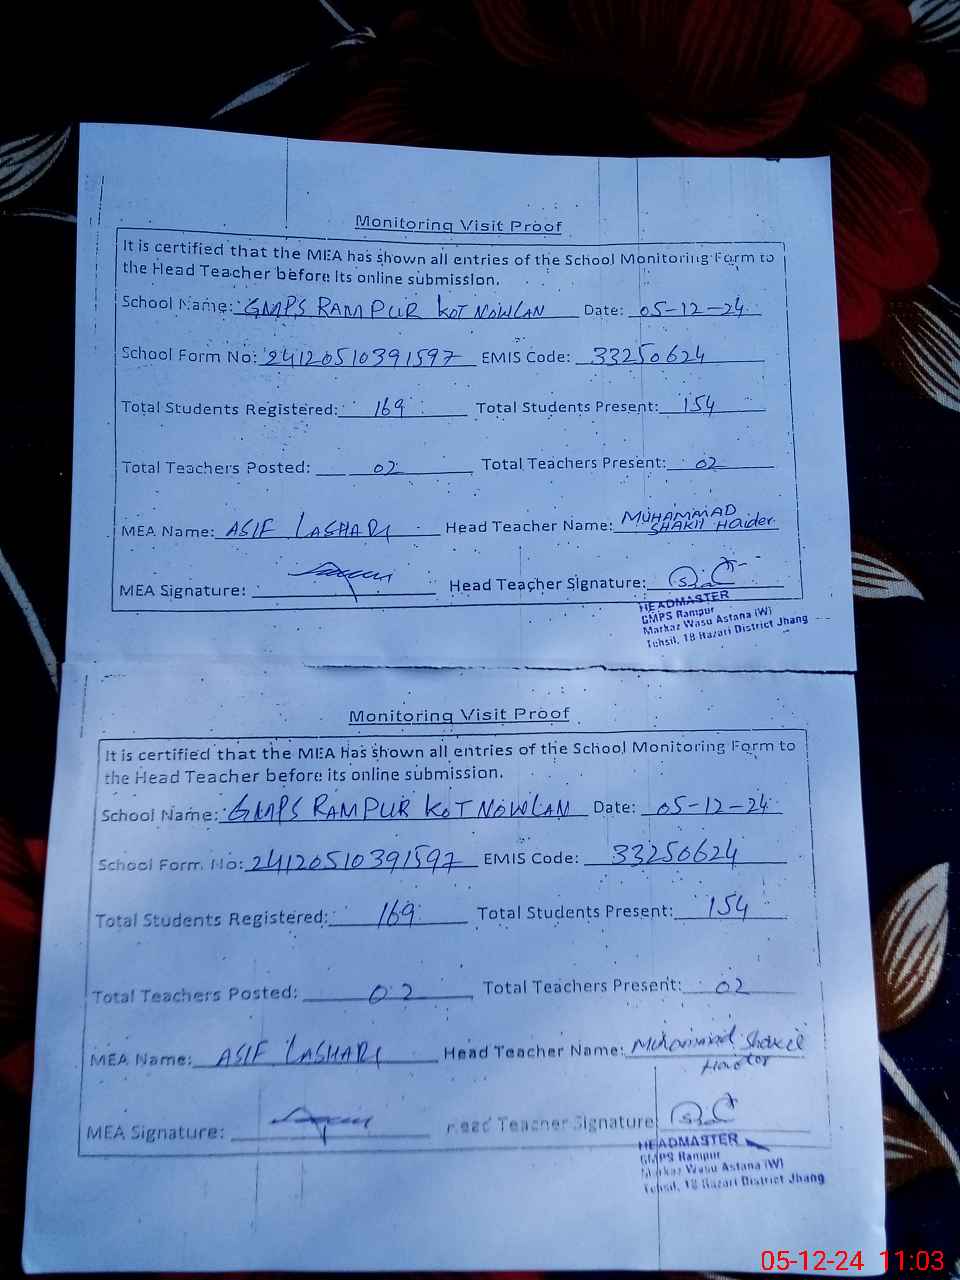 Monitoring Visit Proof
It is certified that the MEA has shown all entries of the School Monitoring Form to
the Head Teacher before its online submission.
School Name: GMPS RAMPUR KOT NOWLAN Date: 05-12-24
School Form No: 24120510391597 EMIS Code: 33250624
Total Students Registered: 169 Total Students Present: 154
Total Teachers Posted: 02 Total Teachers Present: 02
MEA Name: ASIF LASHARI Head Teacher Name: MUHAMMAD
SHAKIL Haider
MEA Signature: Head Teacher Signature:
HEADMASTER
GMPS Rampur
Markaz Wasu Astana (W)
Tehsil. 18 Hazari District Jhang
Monitoring Visit Proof
It is certified that the MEA has shown all entries of the School Monitoring Form to
the Head Teacher before its online submission.
School Name: GMPS RAMPUR KOT NOWLAN Date: 05-12-24
School Form No: 24120510391597 EMIS Code: 33250624
Total Students Registered: 169 Total Students Present: 154
Total Teachers Posted: 02 Total Teachers Present: 02
MEA Name: ASIF LASHARI Head Teacher Name: Muhammad Shakil
Haider
MEA Signature: Head Teacher Signature:
HEADMASTER
GMPS Rampur
Markaz Wasu Astana (W)
Tehsil. 18 Hazari District Jhang
05-12-24 11:03